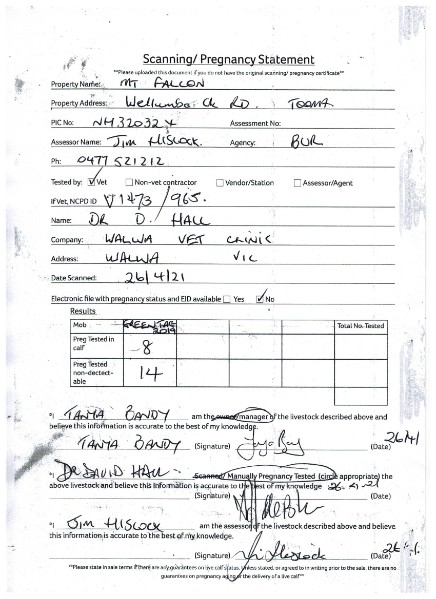 Scanning/ Pregnancy Statement
**Please uploaded this document if you do not have the original scanning/ pregnancy certificate**
Property Name: MT FALCON
Property Address: Wellumba Ck RD. TOOMA
PIC No: NH320324 Assessment No:
Assessor Name: JIM HISCOCK. Agency: BUR
Ph: 0477 521212
Tested by: Vet Non-vet contractor Vendor/Station Assessor/Agent
If Vet, NCPD ID V1473/965.
Name: DR D. HALL
Company: WALWA VET CLINIC
Address: WALWA VIC
Date Scanned: 26/4/21
Electronic file with pregnancy status and EID available Yes No
Results
Mob GREEN TAG 2019 Total No. Tested
Preg Tested in calf 8
Preg Tested non-dectect-able 14
*I TANYA BANDY am the owner/manager of the livestock described above and
believe this information is accurate to the best of my knowledge.
TANYA BANDY (Signature) (Date) 26/4/
*I DR DAVID HALL Scanned/ Manually Pregnancy Tested (circle appropriate) the
above livestock and believe this information is accurate to the best of my knowledge 26-4-21
(Signature) (Date)
*I JIM HISCOCK am the assessor of the livestock described above and believe
this information is accurate to the best of my knowledge.
(Signature) Jim Hiscock (Date)
**Please state in sale terms if there are any guarantees on live calf status. Unless stated, or agreed to in writing prior to the sale, there are no
guarantees on pregnancy aging or the delivery of a live calf**